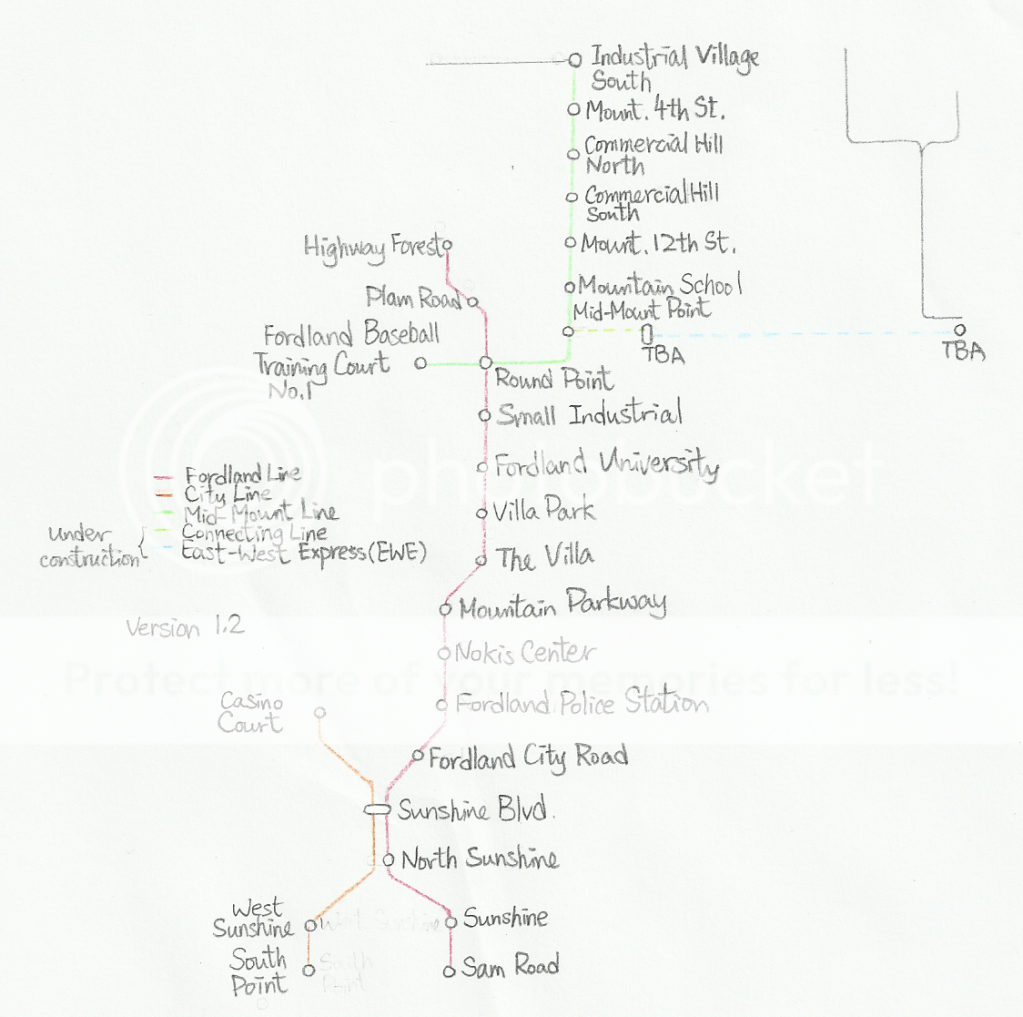 Industrial Village
South
Mount. 4th St.
Commercial Hill
North
Commercial Hill
South
Mount. 12th St.
Mountain School
Mid-Mount Point
TBA
TBA
Highway Forest
Plam Road
Fordland Baseball
Training Court
No.1
Round Point
Small Industrial
Fordland University
Villa Park
The Villa
Mountain Parkway
Nokis Center
Fordland Police Station
Fordland City Road
Sunshine Blvd.
North Sunshine
Sunshine
Sam Road
Casino
Court
West
Sunshine
West Sunshine
South
Point
South
Point
Fordland Line
City Line
Mid-Mount Line
Connecting Line
East-West Express(EWE)
under
construction
Version 1.2
photobucket
Protect more of your memories for less!